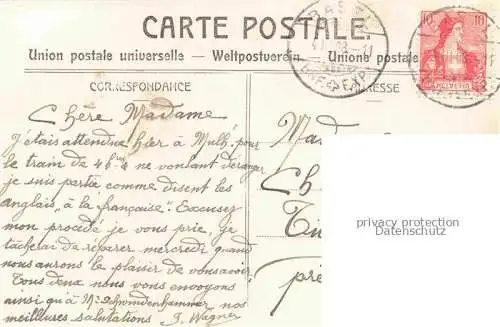 CARTE POSTALE.
Union postale universelle — Weltpostverein. Unione postale
CORRESPONDANCE
Chère Madame
J'étais attendue hier à Mulh. pour
le train de 4h ne voulant déranger
je suis partie comme disent les
anglais "à la française". Excusez
mon procédé je vous prie, je
tâcherai de réparer mercredi quand
nous aurons le plaisir de vous avoir
Tous deux nous vous envoyons
ainsi qu'à Mr Schwindenhammer nos
meilleures salutations J. Wagner
BASEL
EXP.
10 10
HELVETIA
ADRESSE
Mad
Ch
pr
privacy protection
Datenschutz